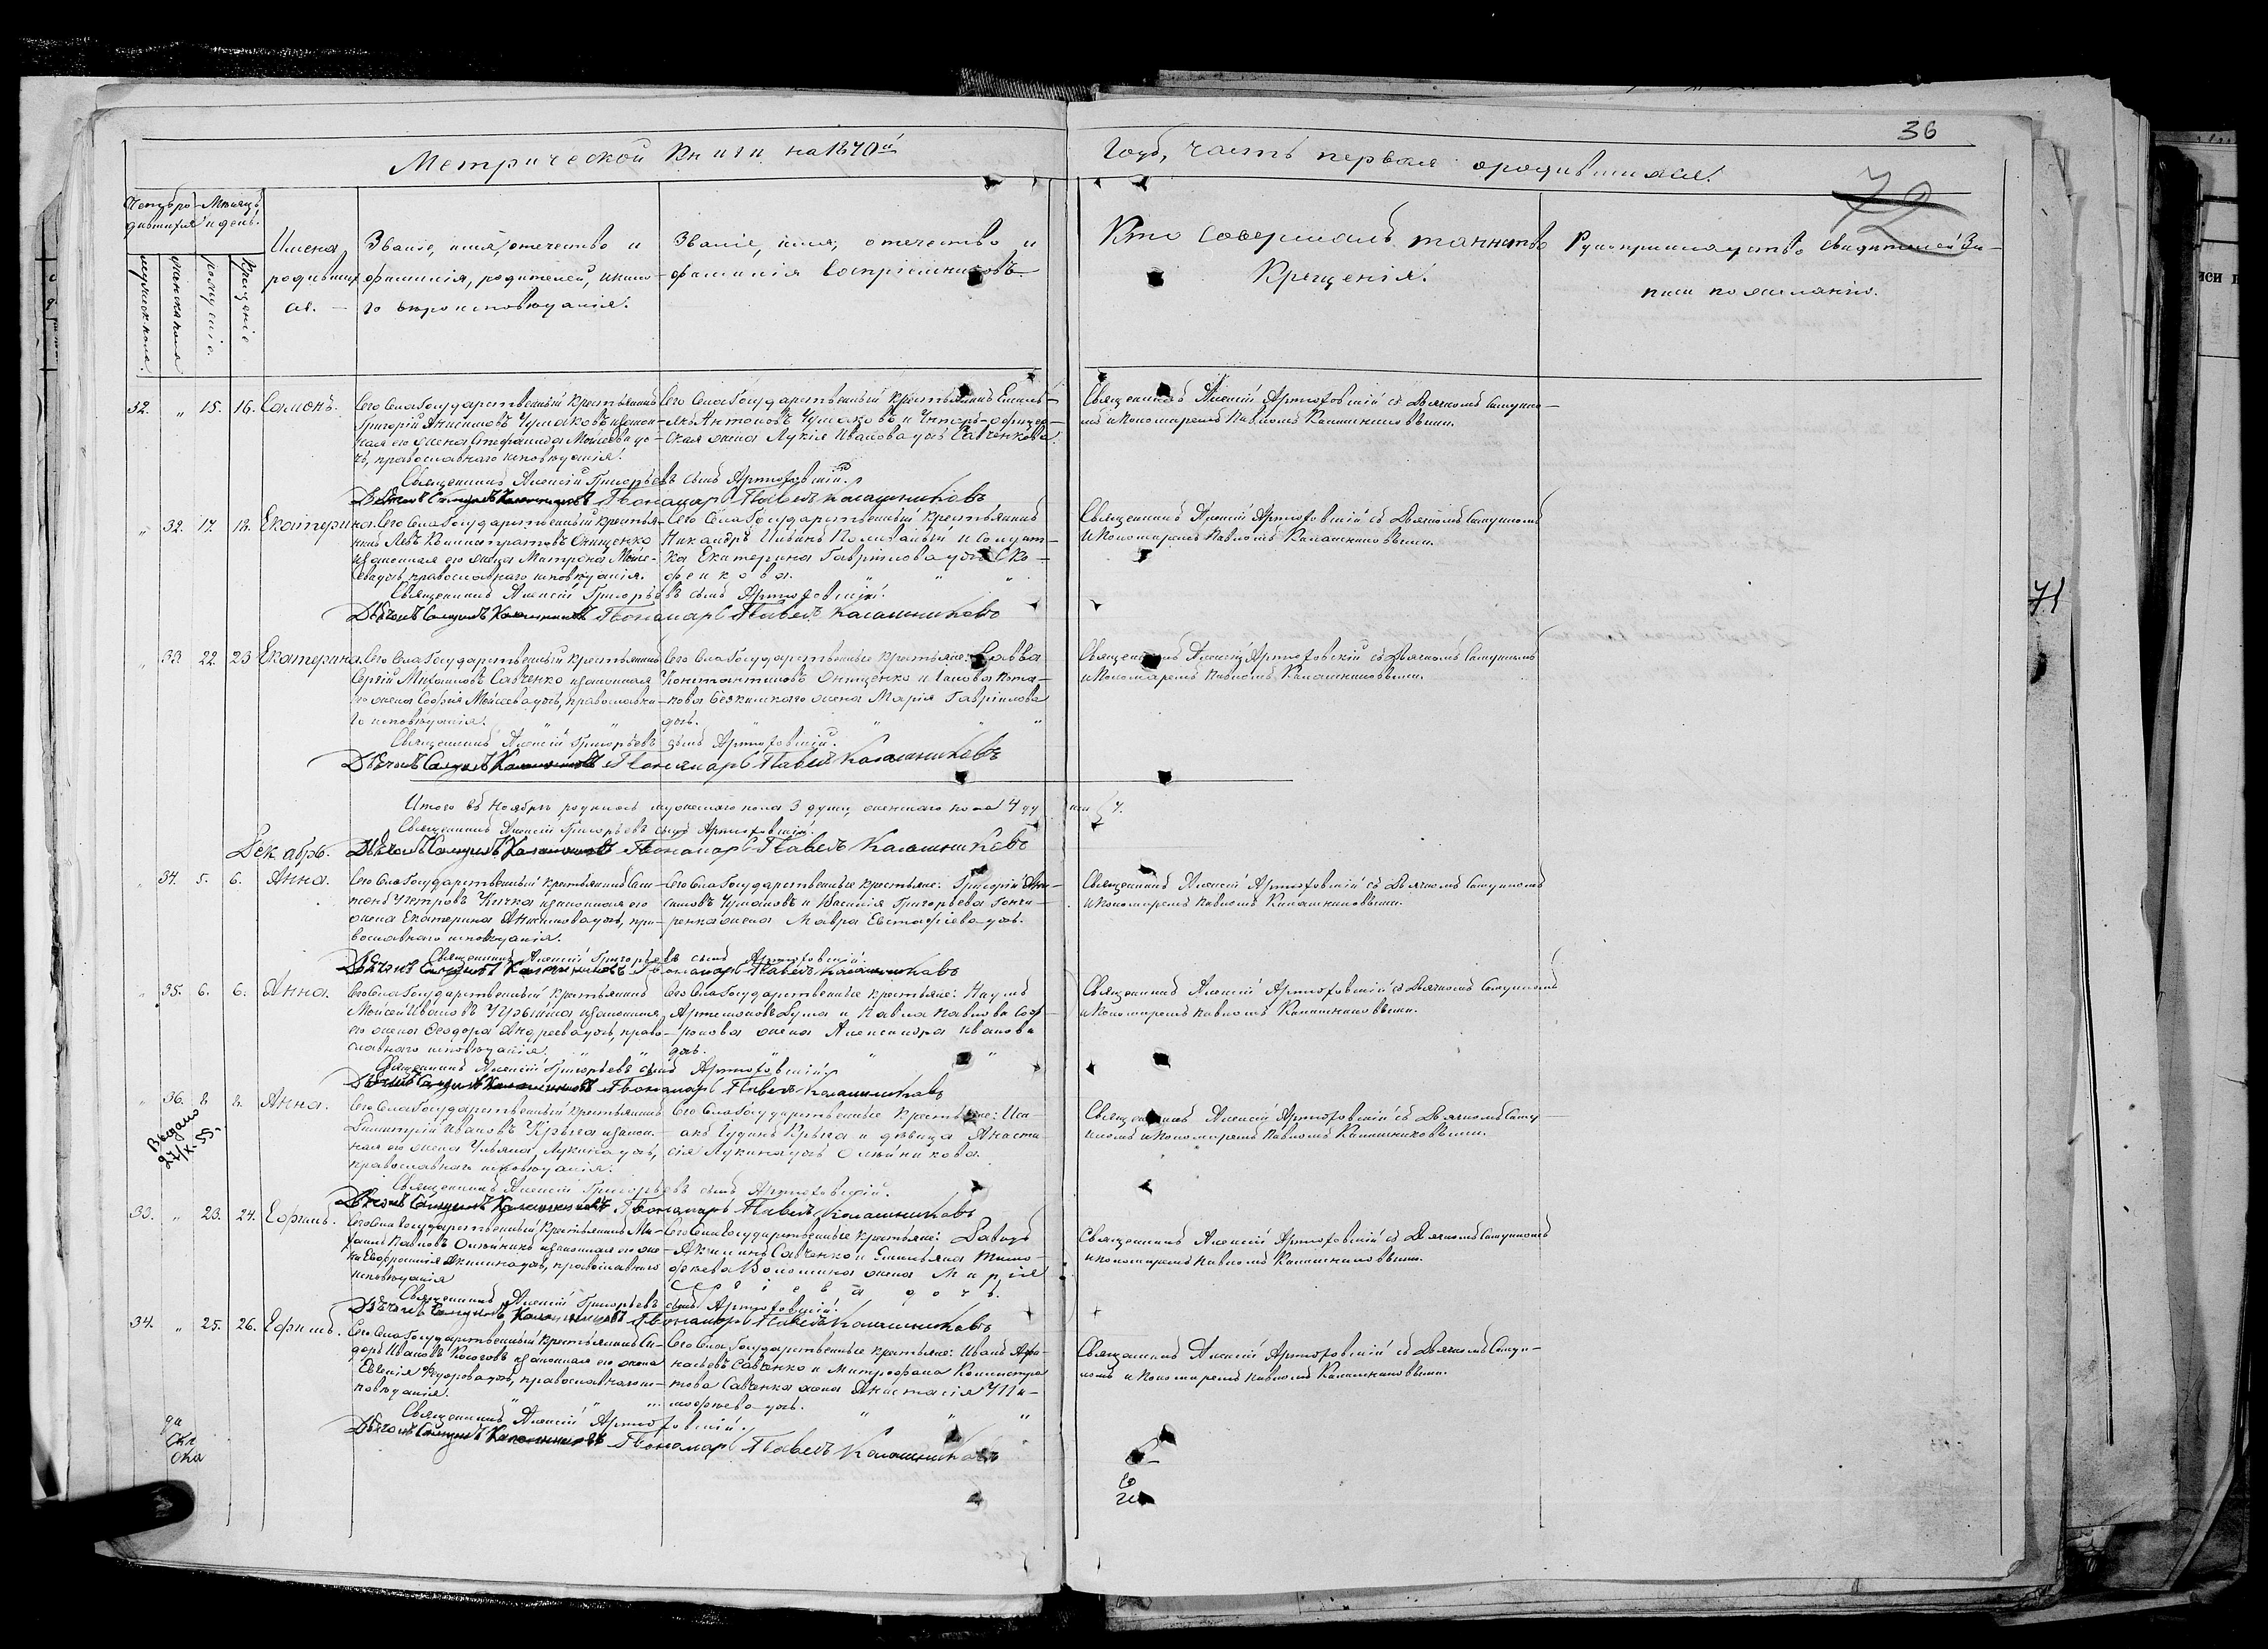 36
Метрической Книги на 1870й
Годъ, часть первая о родившихся.
72
Счетъ родившихся
Мѣсяцъ и день.
мужеска пола.
женска пола
рожденіе.
Крещеніе
Имена
родивших
ся.
Званіе, имя, отечество и
фамилія, родителей, и како-
го вѣроисповѣданія.
Званіе, имя, отечество и
фамилія Воспріемниковъ
Кто совершалъ таинство
Крещенія.
Рукоприкладство свидѣтелей За-
писи по желанію.
32. " 15. 16. Самонъ.
Сего Села Государственный Крестьянинъ
Григорій Анисимовъ Чумаковъ и закон-
ная его жена Стефанида Моисеева до-
чь, православнаго исповѣданія.
Сего Села Государственный Крестьянинъ Емель-
янъ Антоновъ Чумаковъ и Унтеръ-офицер-
ская жена Лукія Иванова дочь Савченкова.
Священникъ Алексій Артюховскій съ Дьячкомъ Самуило-
мъ и Пономаремъ Павломъ Калашниковыми.
Священникъ Алексій Григорьевъ сынъ Артюховскій.
Дьячокъ Самуилъ Калашниковъ Пономарь Павелъ Калашниковъ
" 32. 17. 18. Екатерина.
Сего Села Государственный Крестья-
нинъ Левъ Онищенко
и законная его жена Матрона Моисе-
ева дочь, православнаго исповѣданія.
Сего Села Государственный Крестьянинъ
Никандръ Ильинъ и Солдат-
ка Екатерина Гаврілова дочь Ско-
рикова. " " "
Священникъ Алексій Артюховскій съ Дьячкомъ Самуиломъ
и Пономаремъ Павломъ Калашниковыми.
Священникъ Алексій Григорьевъ сынъ Артюховскій.
Дьячокъ Самуилъ Калашниковъ Пономарь Павелъ Калашниковъ
71
" 33. 22. 23 Екатерина.
Сего Села Государственный Крестьянинъ
Сергій Михаиловъ Савченко и законная
его жена Софія Моисеева дочь, православна-
го исповѣданія. " "
Сего Села Государственные Крестьяне: Савва
Константиновъ Онищенко и
жена Марія Гаврілова
дочь. " " " "
Священникъ Алексій Артюховскій съ Дьячкомъ Самуиломъ
и Пономаремъ Павломъ Калашниковыми.
Священникъ Алексій Григорьевъ сынъ Артюховскій.
Дьячокъ Самуилъ Калашниковъ Пономарь Павелъ Калашниковъ
Итого въ Ноябрѣ родилось мужескаго пола 3 души, женскаго пола 4 ду ши 7.
Священникъ Алексій Григорьевъ сынъ Артюховскій.
Дьячокъ Самуилъ Калашниковъ Пономарь Павелъ Калашниковъ
Декабрь.
" 34. 5. 6. Анна.
Сего Села Государственный Крестьянинъ Сим-
жена Екатерина Анисимова дочь, пра-
вославнаго исповѣданія.
Сего Села Государственные крестьяне: Григорій Ани-
симовъ Чумаковъ и Василія Григорьева Гонча-
ренка жена Мавра Евстафіева дочь.
Священникъ Алексій Артюховскій съ Дьячкомъ Самуиломъ
и Пономаремъ Павломъ Калашниковыми.
Священникъ Алексій Григорьевъ сынъ Артюховскій.
Дьячокъ Самуилъ Калашниковъ Пономарь Павелъ Калашниковъ
" 35. 6. 6. Анна.
Сего Села Государственный Крестьянинъ
Моисей Ивановъ и законная
его жена Ѳеодора Андреева дочь, право-
славнаго исповѣданія. " "
Сего Села Государственные крестьяне: Наумъ
Артемоновъ и Павла Павлова
жена Александра Иванова
дочь. " " "
Священникъ Алексій Артюховскій съ Дьячкомъ Самуиломъ
и Пономаремъ Павломъ Калашниковыми.
Священникъ Алексій Григорьевъ сынъ Артюховскій.
Дьячокъ Самуилъ Калашниковъ Пономарь Павелъ Калашниковъ
" 36. 8. 8. Анна.
Выдано
27/X-55.
Сего Села Государственный Крестьянинъ
Димитрій Ивановъ Крыга и закон-
ная его жена Ульяна Лукина дочь,
православнаго исповѣданія.
Сего Села Государственные Крестьяне: Иса-
акъ Іудинъ Крыга и дѣвица Анаста-
сія Лукина дочь Олейникова.
Священникъ Алексій Артюховскій съ Дьячкомъ Саму-
иломъ и Пономаремъ Павломъ Калашниковыми.
Священникъ Алексій Григорьевъ сынъ Артюховскій.
Дьячокъ Самуилъ Калашниковъ Пономарь Павелъ Калашниковъ
33. " 23. 24. Ефимъ.
Сего Села Государственный Крестьянинъ Ми-
хаилъ Павловъ Олейникъ и законная его же-
на Евфросинія Акилина дочь, православнаго
исповѣданія
Сего Села Государственные Крестьяне: Давидъ
Акилинъ Савченко и Емельяна Тимо-
феева Волошина жена Марія
Сергіева дочь.
Священникъ Алексій Артюховскій съ Дьячкомъ Самуиломъ
и пономаремъ Павломъ Калашниковыми.
Священникъ Алексій Григорьевъ сынъ Артюховскій.
Дьячокъ Самуилъ Калашниковъ Пономарь Павелъ Калашниковъ
34. " 25. 26. Ефимъ.
Сего Села Государственный Крестьянинъ Си-
доръ Ивановъ и законная его жена
Евгенія Ѳедорова дочь, православнаго ис-
повѣданія. " "
Сего Села Государственные крестьяне: Иванъ Афа-
насьевъ Савченко и Митрофана
Савченка жена Анастасія Ти-
мофеева дочь. " " "
Священникъ Алексій Артюховскій съ Дьячкомъ Самуи-
ломъ и Пономаремъ Павломъ Калашниковыми.
Священникъ Алексій Артюховскій.
Дьячокъ Самуилъ Калашниковъ Пономарь Павелъ Калашниковъ